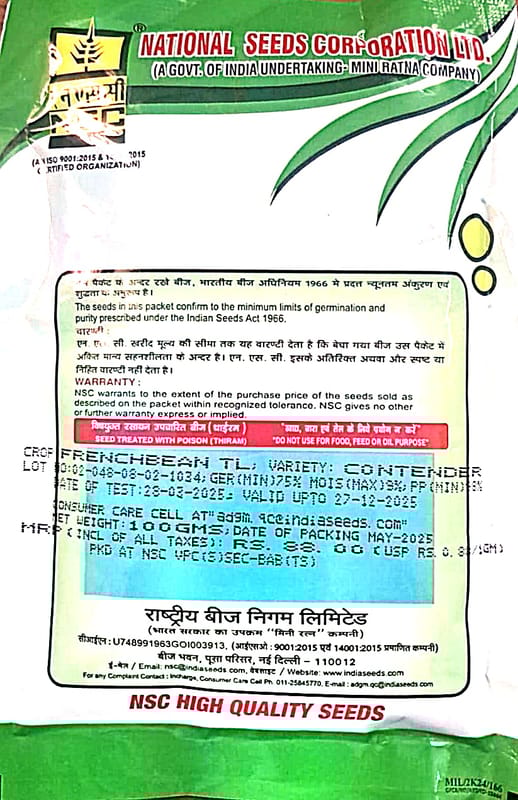 ®
NATIONAL SEEDS CORPORATION LTD.
(A GOVT. OF INDIA UNDERTAKING- MINI RATNA COMPANY)
एन एस सी
NSC
ISO 9001:2015 & 2015
CERTIFIED ORGANIZATION)
पैकेट के अन्दर रखे बीज, भारतीय बीज अधिनियम 1966 में प्रदत्त न्यूनतम अंकुरण एवं
शुद्धता के अनुरूप है।
The seeds in this packet confirm to the minimum limits of germination and
purity prescribed under the Indian Seeds Act 1966.
वारण्टी :
एन. एस. सी. खरीद मूल्य की सीमा तक यह वारण्टी देता है कि बेचा गया बीज उस पैकेट में
अंकित मान्य सहनशीलता के अन्दर है। एन. एस. सी. इसके अतिरिक्त अथवा और स्पष्ट या
निहित वारण्टी नहीं देता है।
WARRANTY :
NSC warrants to the extent of the purchase price of the seeds sold as
described on the packet within recognized tolerance. NSC gives no other
or further warranty express or implied.
विषयुक्त रसायन उपचारित बीज (थाईरम)
SEED TREATED WITH POISON (THIRAM)
"खाद्य, चारा एवं तेल के लिये प्रयोग न करें"
"DO NOT USE FOR FOOD, FEED OR OIL PURPOSE"
CROP FRENCHBEAN TL; VARIETY: CONTENDER
LOT NO:02-048-08-02-1034;GER(MIN)75% MOIS(MAX)9%;PP(MIN)
DATE OF TEST:28-03-2025; VALID UPTO 27-12-2025
CONSUMER CARE CELL AT"adgm.qc@indiaseeds.com"
NET WEIGHT:100GMS;DATE OF PACKING MAY-2025
MRP(INCL OF ALL TAXES): RS. 88.00(USP RS. 0.88/1GM)
PKD AT NSC VPC(S)SEC-BAB(TS)
राष्ट्रीय बीज निगम लिमिटेड
(भारत सरकार का उपक्रम "मिनी रत्न" कम्पनी)
सीआईएन : U748991963GOI003913, (आईएसओ : 9001:2015 एवं 14001:2015 प्रमाणित कम्पनी)
बीज भवन, पूसा परिसर, नई दिल्ली - 110012
ई-मेल / Email: nsc@indiaseeds.com, वेबसाइट / Website: www.indiaseeds.com
For any Complaint Contact : Incharge, Consumer Care Cell Ph. 011-25845770, E-mail : adgm.qc@indiaseeds.com
NSC HIGH QUALITY SEEDS
MIL/2K24/166